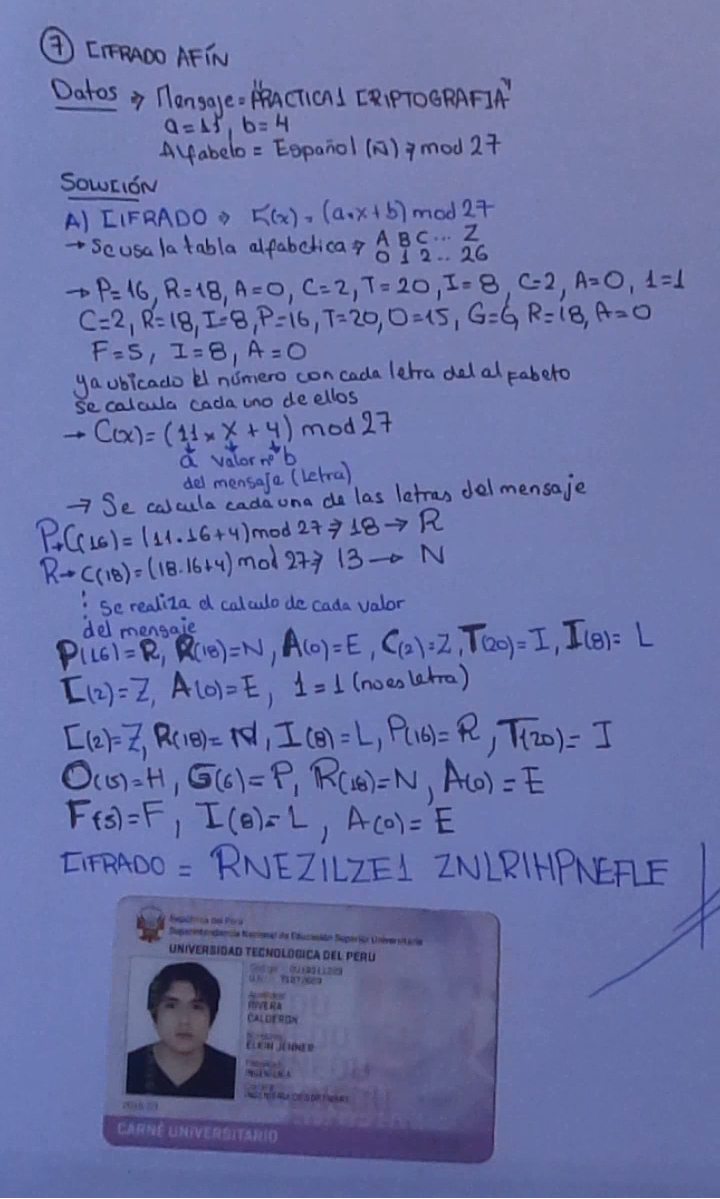 ⑦ CIFRADO AFÍN
Datos → Mensaje = "PRACTICA1 CRIPTOGRAFIA"
a=11, b=4
Alfabeto = Español (Ñ) → mod 27
SOLUCIÓN
A) CIFRADO → E(x) = (a.x+b) mod 27
→ Se usa la tabla alfabetica → A B C ... Z
0 1 2 .. 26
→ P=16, R=18, A=0, C=2, T=20, I=8, C=2, A=0, 1=1
C=2, R=18, I=8, P=16, T=20, O=15, G=6, R=18, A=0
F=5, I=8, A=0
ya ubicado el número con cada letra del alfabeto
se calcula cada uno de ellos
→ C(x) = (11 x X + 4) mod 27
a valor nº b
del mensaje (letra)
→ Se calcula cada una de las letras del mensaje
P→C(16) = (11.16+4) mod 27 → 18 → R
R→C(18) = (18.16+4) mod 27 → 13 → N
⋮ Se realiza el calculo de cada valor
del mensaje
P(16)=R, R(18)=N, A(0)=E, C(2)=Z, T(20)=I, I(8)=L
C(2)=Z, A(0)=E, 1=1 (no es letra)
C(2)=Z, R(18)=N, I(8)=L, P(16)=R, T(20)=I
O(15)=H, G(6)=P, R(18)=N, A(0)=E
F(5)=F, I(8)=L, A(0)=E
CIFRADO = RNEZILZE1 ZNLRIHPNEFLE
República Del Perú
Superintendencia Nacional de Educación Superior Universitaria
UNIVERSIDAD TECNOLOGICA DEL PERU
RIVERA
CALDERON
ELKIN JENNER
INGENIERIA
CARNÉ UNIVERSITARIO